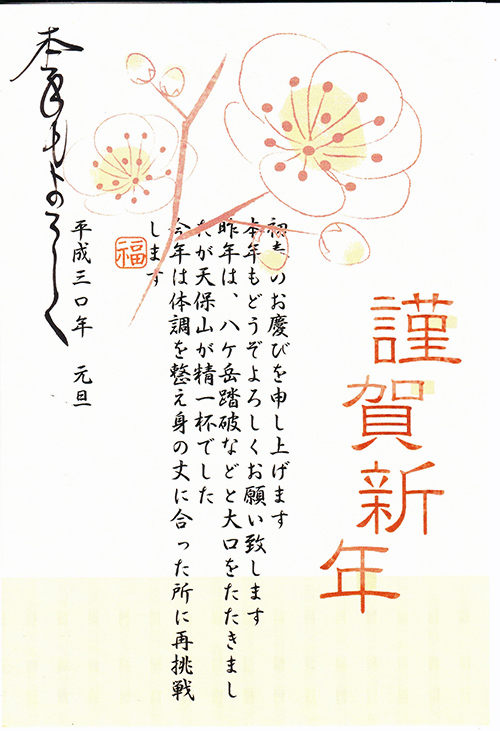 謹賀新年
初春のお慶びを申し上げます
本年もどうぞよろしくお願い致します
昨年は、八ケ岳踏破などと大口をたたきまし
たが天保山が精一杯でした
今年は体調を整え身の丈に合った所に再挑戦
します
福
平成三〇年 元旦
本年もよろしく